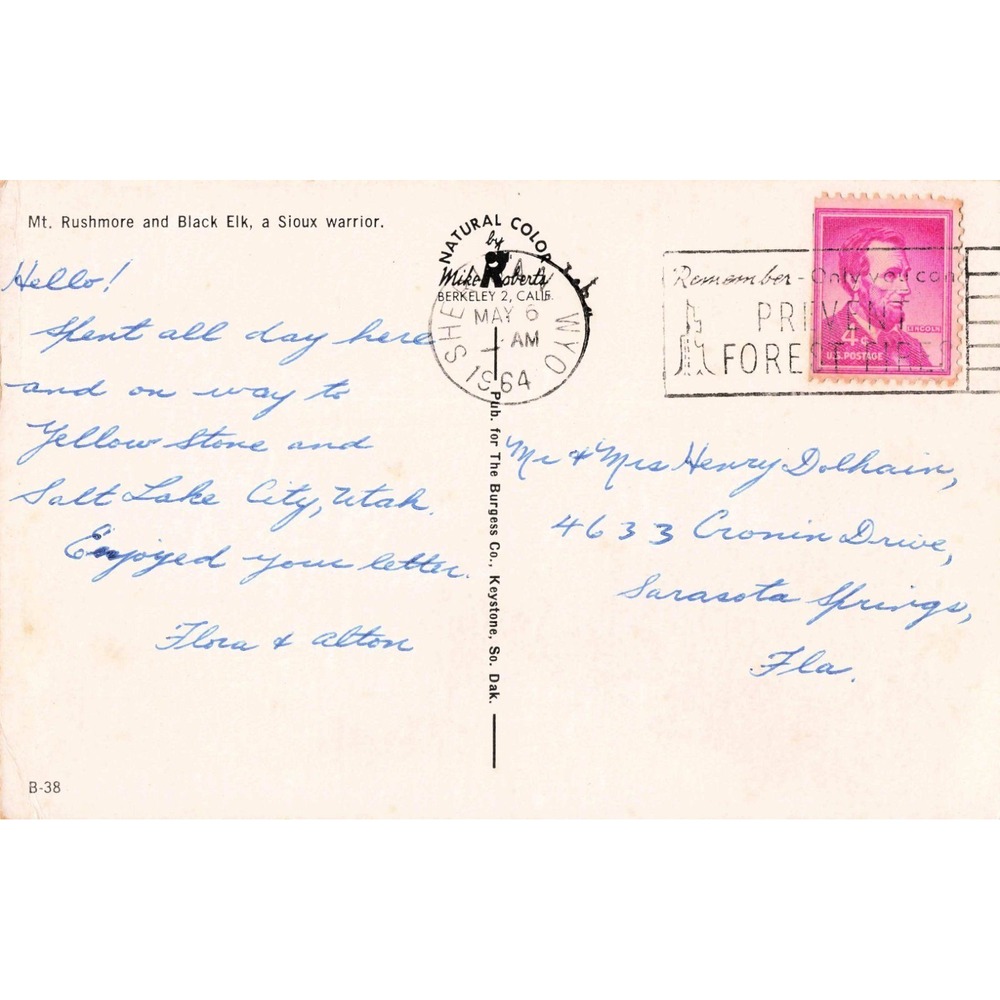 Mt. Rushmore and Black Elk, a Sioux warrior.
Hello!
Spent all day here
and on way to
Yellow Stone and
Salt Lake City, Utah.
Enjoyed your letter.
Flora & Alton
B-38
NATURAL COLOR
by
Mike Roberts
BERKELEY 2, CALIF.
MAY 6
AM
1964
WYO
Pub. for The Burgess Co., Keystone, So. Dak.
Remember - Only you can
PREVENT
FOREST FIRES
LINCOLN
4¢
U.S. POSTAGE
Mr & Mrs Henry Dolhain,
4633 Cronin Drive,
Sarasota Springs,
Fla.